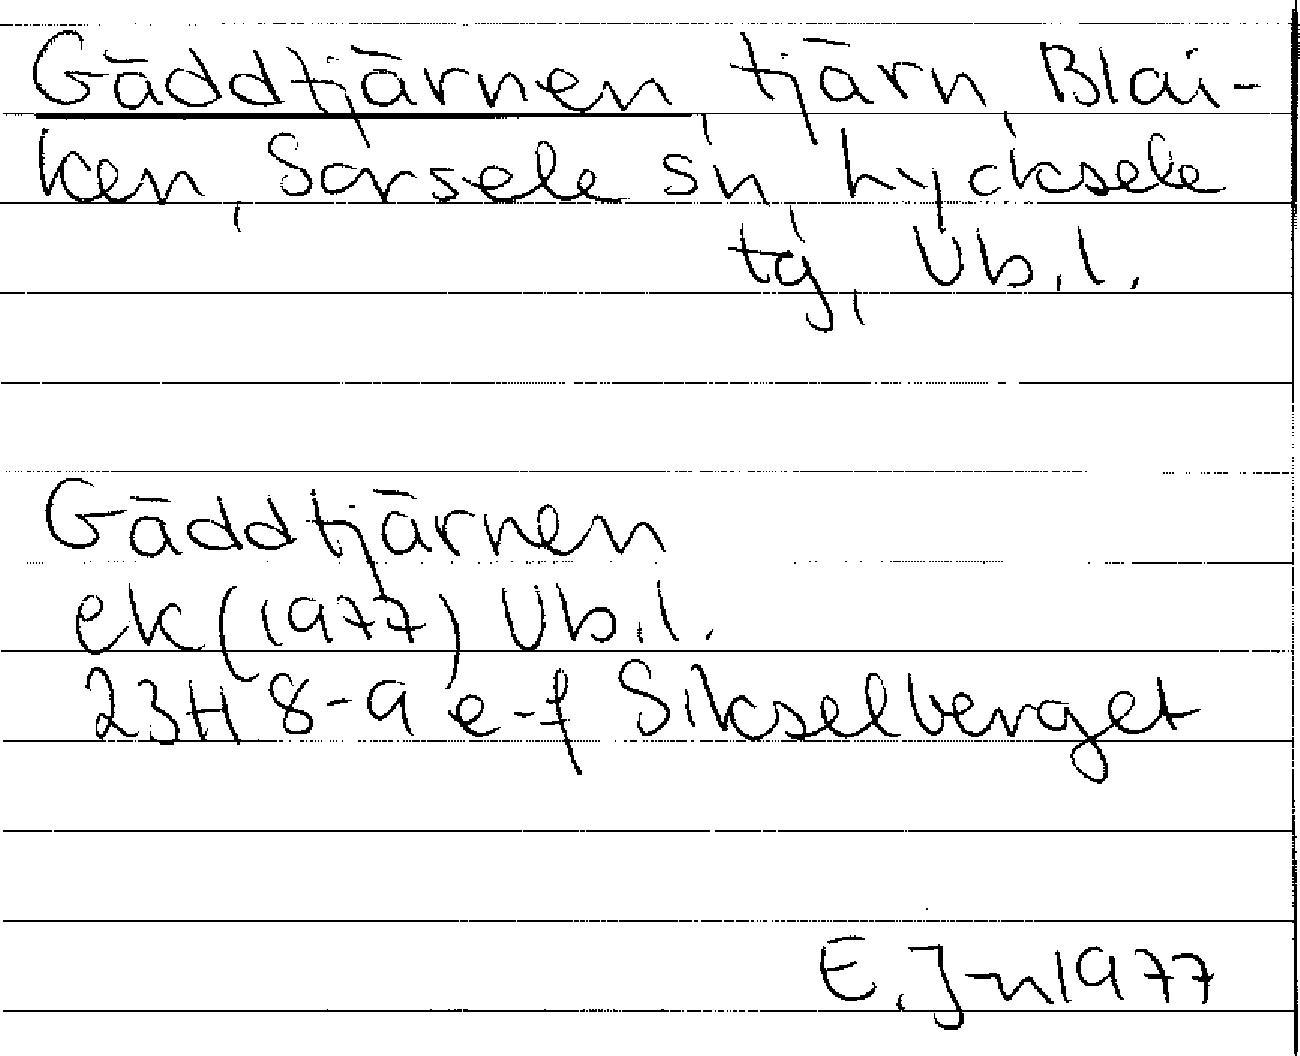 Gäddtjärnen, tjärn, Blai-
ken, Sorsele sn, Lycksele
tg, Vb. l.
Gäddtjärnen
ek (1977) Vb. l.
23H 8-9 e-f Sikselberget
E. J-n 1977